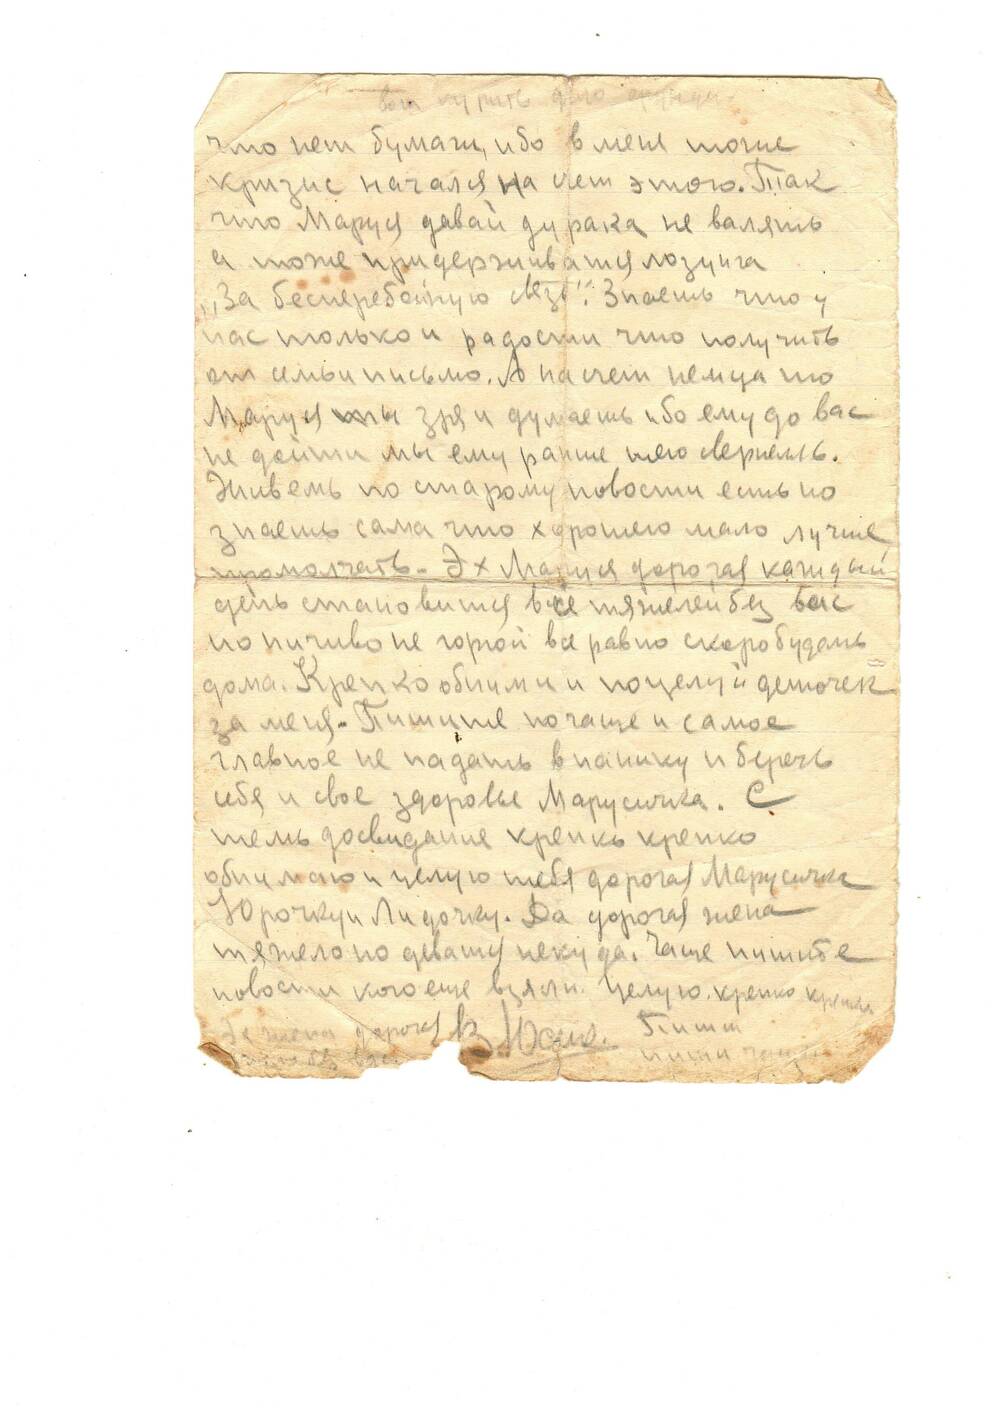 вот курить дело
что нет бумаги, ибо в меня тоже
кризис начался на счет этого. Так
что Маруся давай дурака не валять
а тоже придерживатся лозунга
„За бесперебойную связь“. Знаешь что у
нас только и радости что получить
от семьи письмо. А насчет немца то
Маруся ты зря и думаешь ибо ему до вас
не дойти мы ему раньше шею свернемь.
Живемь по старому новости есть но
знаешь сама что хорошего мало лучше
промолчать. Эх Маруся дорогая каждый
день становится все тяжелей без вас
но ничиво не горюй все равно скоро будемь
дома. Крепко обними и поцелуй деточек
за меня. Пишите почаще и самое
главное не падать в панику и беречь
себя и свое здоровье Марусичка. С
темь досвидание крепко крепко
обнимаю и целую тебя дорогая Марусичка
Юрочку и Лидочку. Да дорогая жена
тяжело но деватся некуда. Чаще пишите
новости кого еще взяли. Целую. крепко крепко
жена дорогая Пиши
без вас пиши